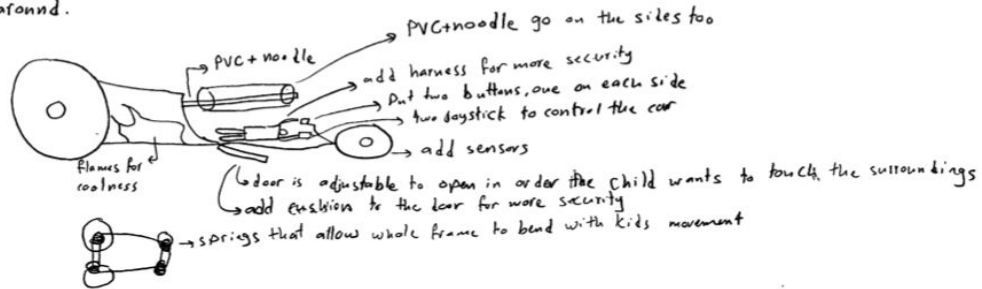 around.
PVC+noodle go on the sides too
PVC + noodle
add harness for more security
put two buttons, one on each side
two joystick to control the car
add sensors
flames for
coolness
door is adjustable to open in order the child wants to touch the surroundings
add cushion to the door for more security
sprigs that allow whole frame to bend with kids movement